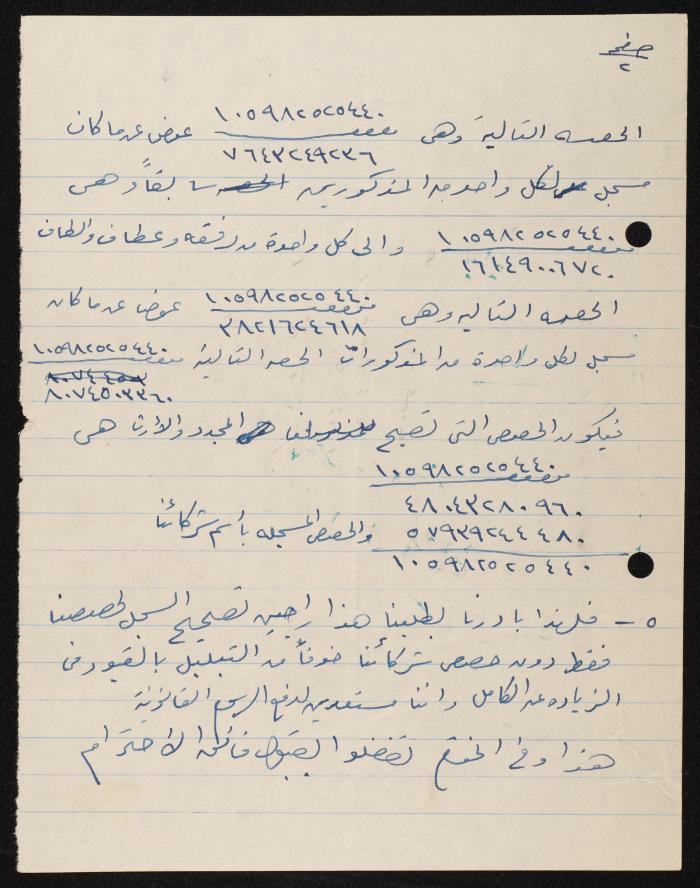 صفحه
٢
١٠٥٩٨٢٥٢٥٤٤٠
الحصه التالية وهي عوض عن ما كان
٧٦٤٣٢٤٩٢٣٦
مسجل لكل واحد من المذكورين سابقاً وهي
١٠٥٩٨٢٥٢٥٤٤٠
والى كل واحدة من رفقه وعطاف والطاف
١٦١٤٩٠٠٦٧٢٠
١٠٥٩٨٢٥٢٥٤٤٠
الحصه التاليه وهي عوضا عن ما كان
٣٨٢١٦٢٤٦١٨
مسجل لكل واحدة من المذكورات الحصه التالية ١٠٥٩٨٢٥٢٥٤٤٠
٨٠٧٤٥٠٣٣٦٠
فيكون الحصص التي تصبح المجدد والارث هي
١٠٥٩٨٢٥٢٥٤٤٠
٤٨٠٤٣٢٨٠٩٦٠
٥٧٩٣٩٢٤٤٤٨٠ والحصص المسجله بأسم شركائنا
١٠٥٩٨٢٥٢٥٤٤٠
٥ – فلهذا بادرنا بطلبنا هذا راجين تصحيح السجل لحصصنا
فقط دون حصص شركائنا خوفاً من التبليل بالقيود في
الزياده عن الكامل واننا مستعدين لدفع الرسوم القانونية
هذا وفي الختام تفضلوا بقبول فائق الاحترام